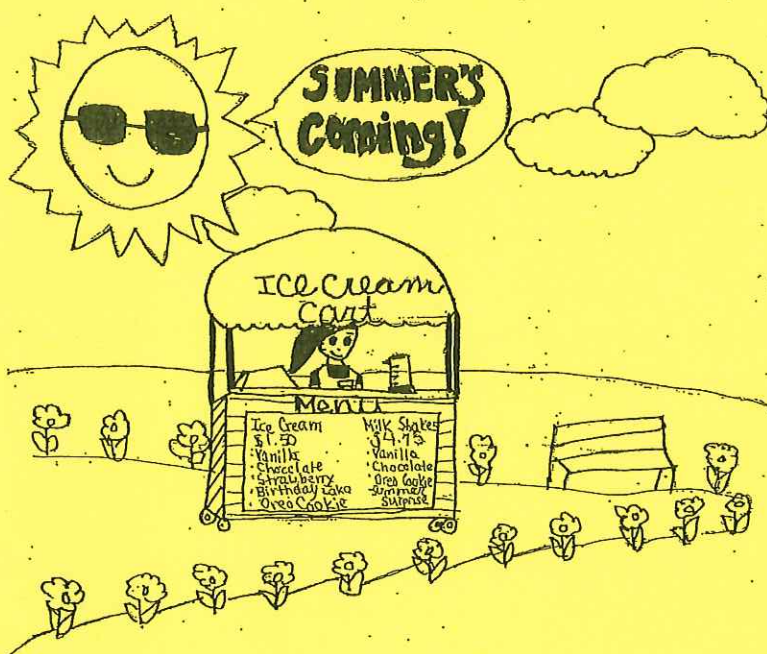 SUMMER'S
Coming!
Ice Cream
Cart
Menu
Ice Cream
$1.50
·Vanilla
·Chocolate
·Strawberry
·Birthday Cake
·Oreo Cookie
Milk Shakes
$4.75
·Vanilla
·Chocolate
Oreo Cookie
·Summer
Surprise